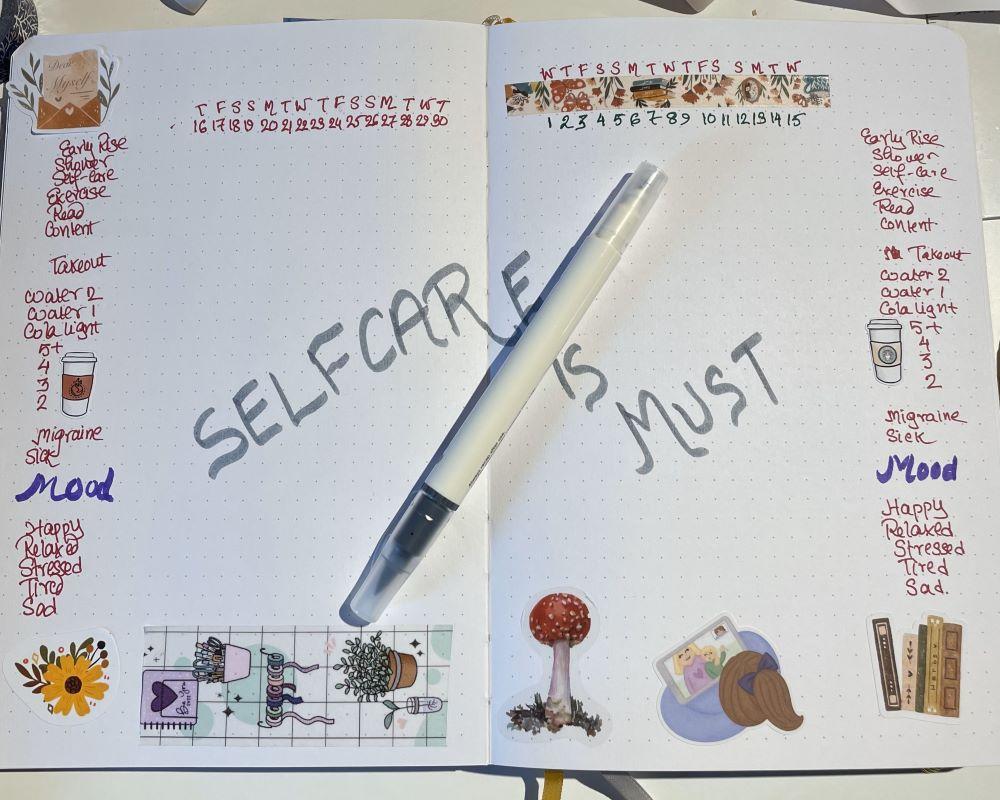 Dear
Myself
T F S S M T W T F S S M T W T
16 17 18 19 20 21 22 23 24 25 26 27 28 29 30
Early Rise
Shower
Self-Care
Exercise
Read
Content
Takeout
Water 2
Water 1
Cola light
5+
4
3
2
Migraine
Sick
Mood
Happy
Relaxed
Stressed
Tired
Sad
W T F S S M T W T F S S M T W
1 2 3 4 5 6 7 8 9 10 11 12 13 14 15
Early Rise
Shower
Self-Care
Exercise
Read
Content
Takeout
Water 2
Water 1
Cola light
5+
4
3
2
Migraine
Sick
Mood
Happy
Relaxed
Stressed
Tired
Sad.
SELFCARE
IS
MUST